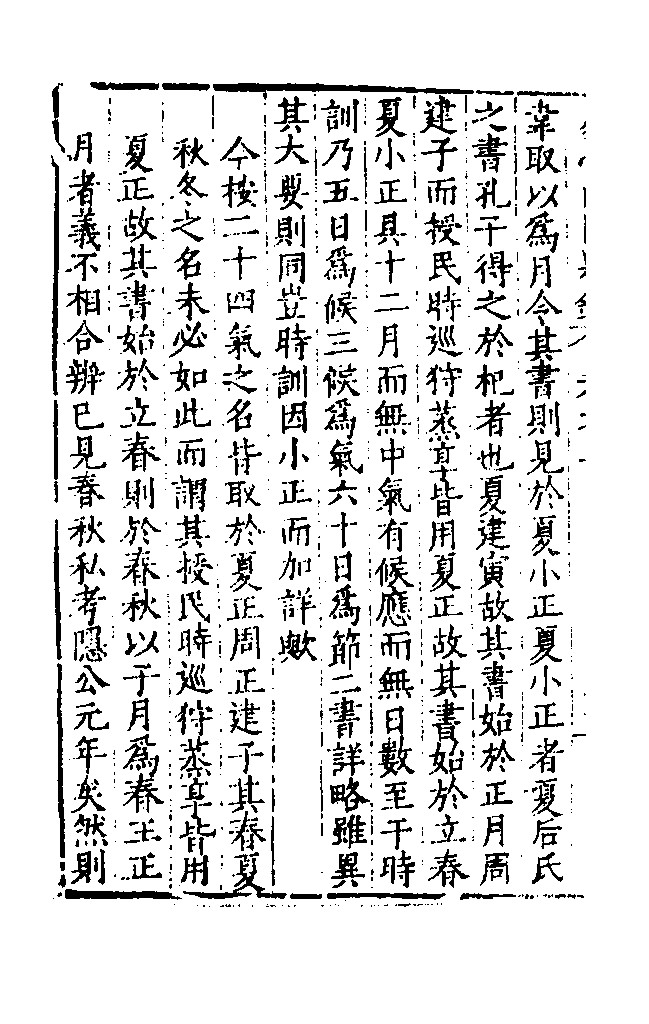 韋取以爲月令其書則見於夏小正夏小正者夏后氏
之書孔子得之於杞者也夏建寅故其書始於正月周
建子而授民時巡狩蒸享皆用夏正故其書始於立春
夏小正具十二月而無中氣有候應而無日數至于時
訓乃五日爲候三候爲氣六十日爲節二書詳略雖異
其大要則同豈時訓因小正而加詳歟
今按二十四氣之名皆取於夏正周正建子其春夏
秋冬之名未必如此而謂其授民時巡狩蒸享皆用
夏正故其書始於立春則於春秋以子月爲春王正
月者義不相合辨已見春秋私考隱公元年矣然則